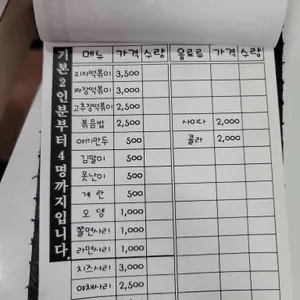 기본2인분부터4명까지입니다.
메뉴 가격 수량 음료류 가격 수량
피자떡볶이 3,500
짜장떡볶이 3,000
고추장떡볶이 2,500
볶음밥 2,500 사이다 2,000
야끼만두 500 콜라 2,000
김말이 500
못난이 500
계란 500
오뎅 1,000
쫄면사리 1,000
라면사리 1,000
치즈사리 3,000
야채사리 2,500